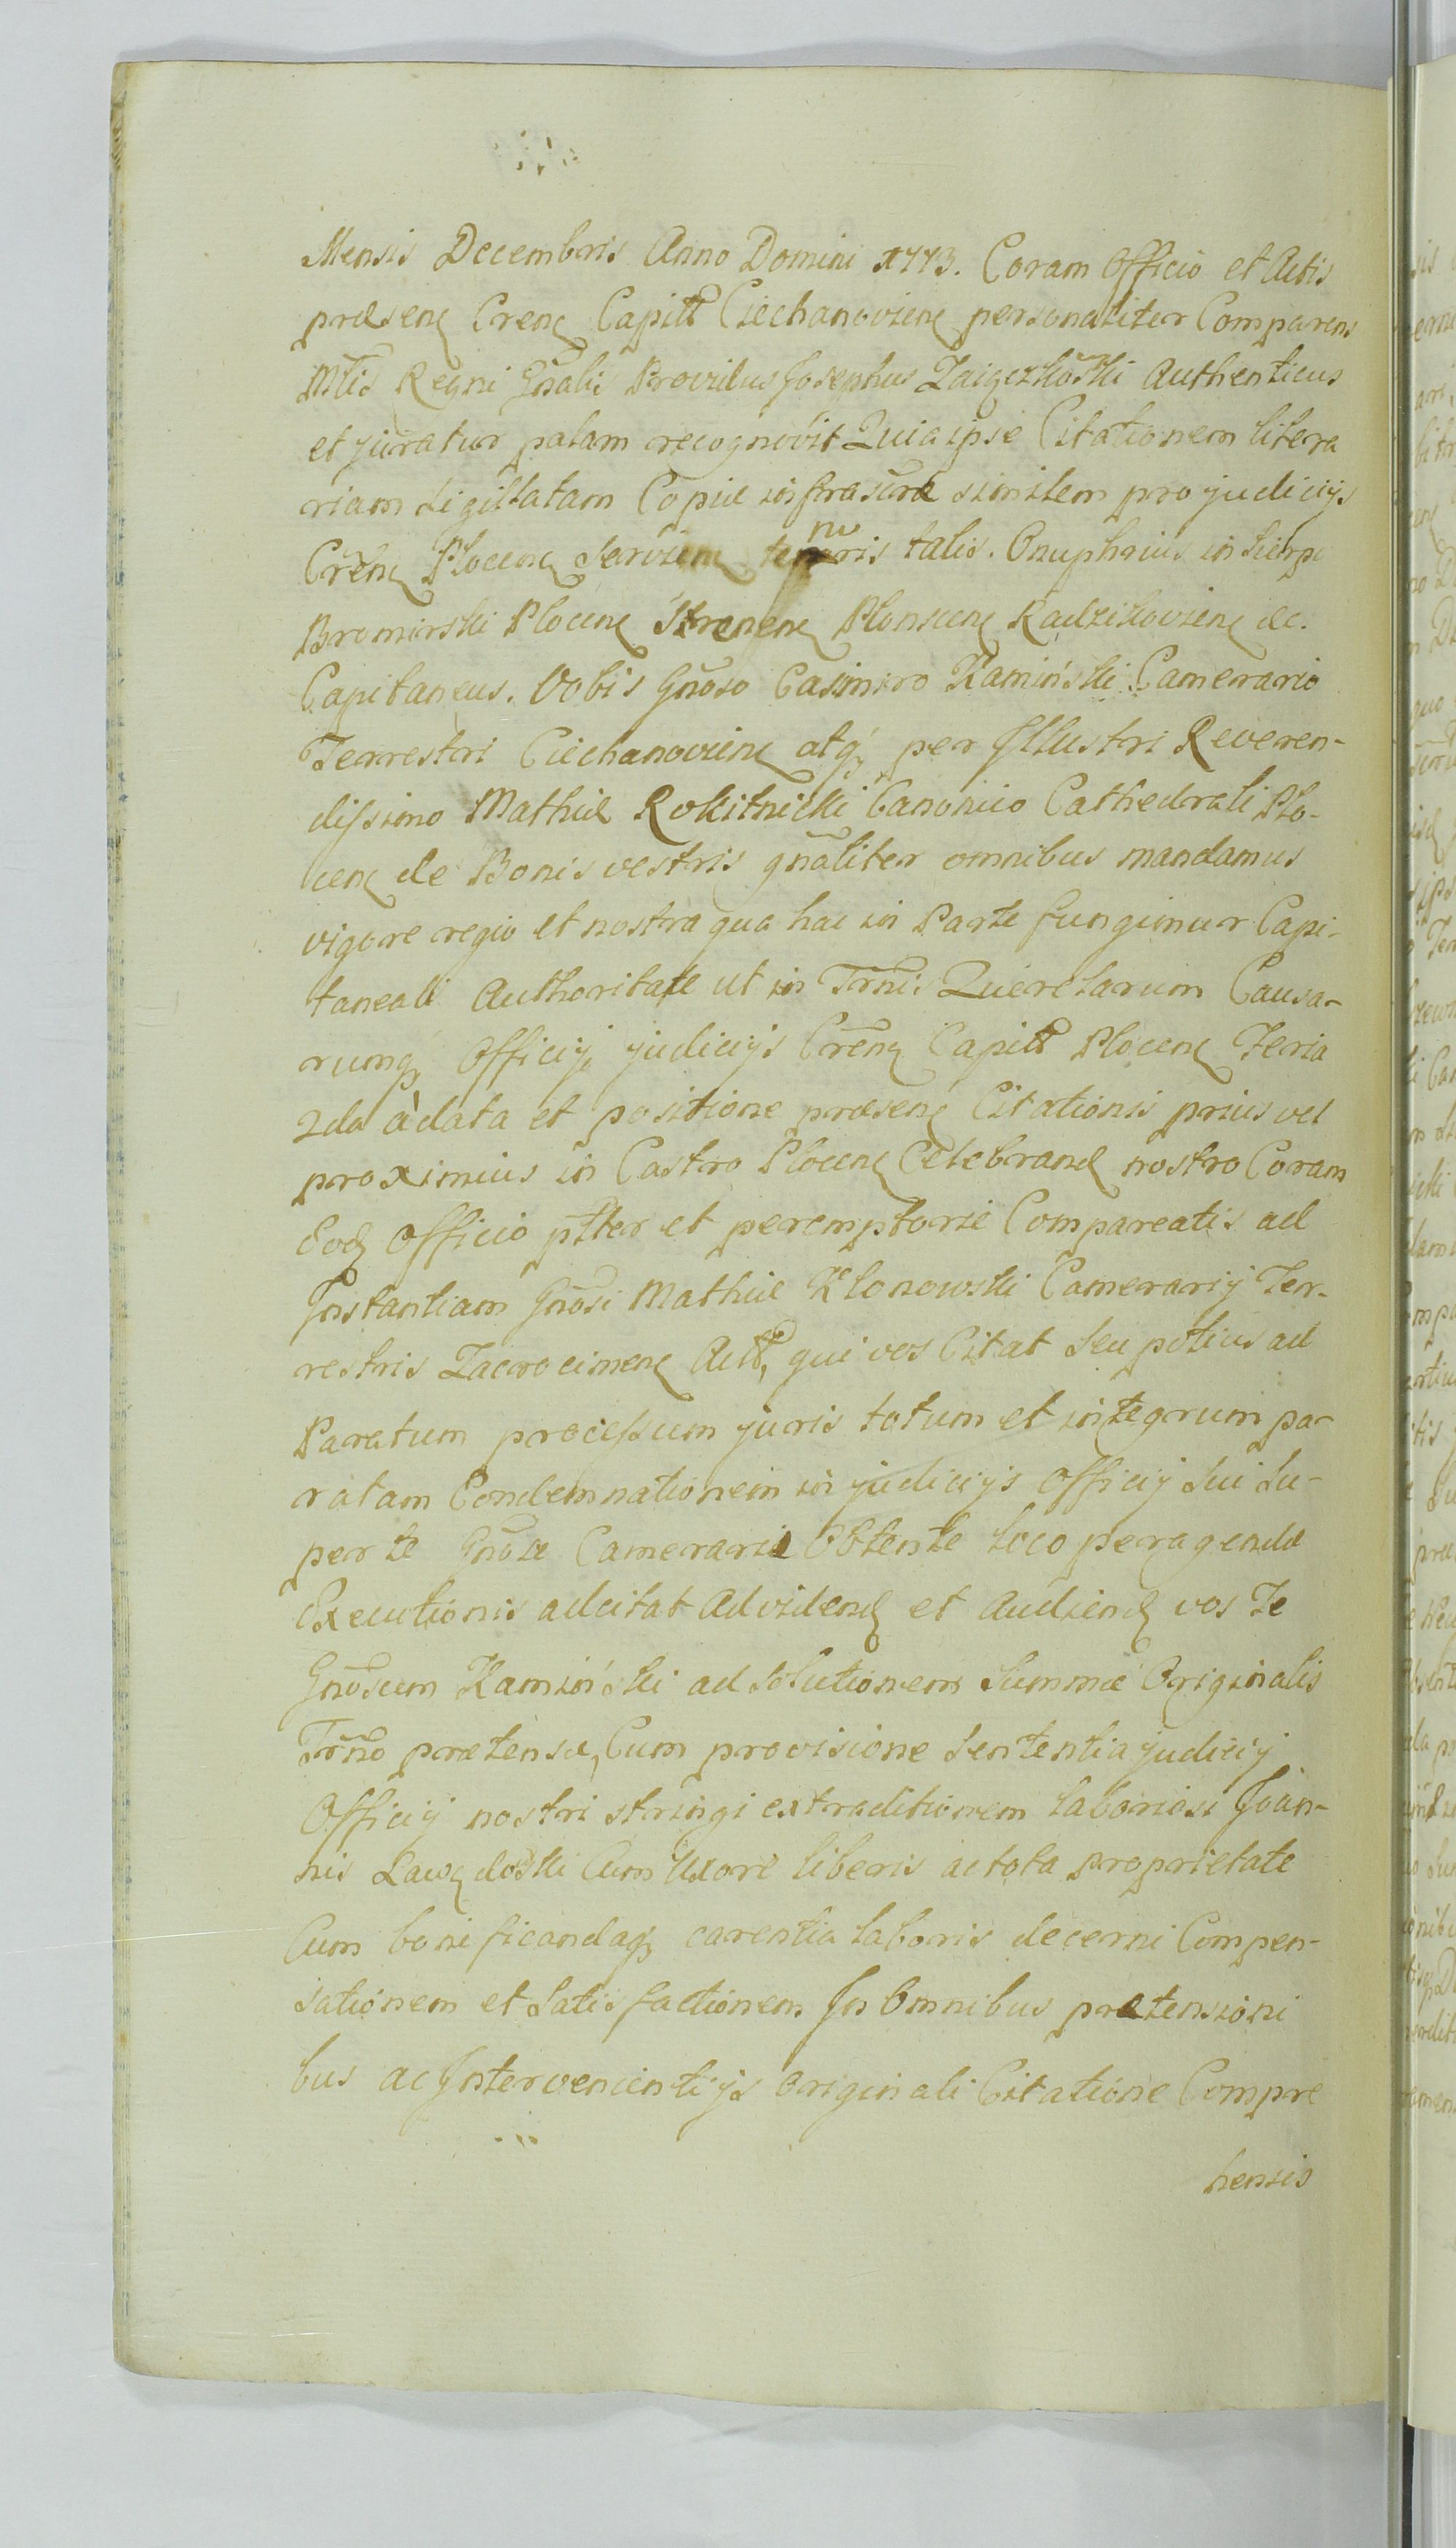 Mensis Decembris Anno Domini 1773. Coram Officio et Actis
præsenꝫ Crenꝫ Capitt Ciechanovienꝫ personaliter Comparens
Mtis Regni Gñalis Providus Josephus Authenticus
et juratus palam recognovit Quia ipse Citationem litera
riam sigillatam Copiæ infrascræ similem pro judicijs
Crẽnꝫ Plocenꝫ Servienꝫ tenoris talis. Onuphrius in Sierpc
Bromirski Plocenꝫ Srenenꝫ Plonscenꝫ Radzikovienꝫ &c.
Capitaneus. Vobis Gnõso Casimiro Kamiński Camerario
Terrestri Ciechanovienꝫ atqꝫ per Jllustri Reveren-
dissimo Mathiæ Rokitnicki Canonico Cathedrali Plo-
cenꝫ de Bonis vestris gnãliter omnibus mandamus
vigore regio et nostra qua hac in Parte fungimur Capi-
taneali Authoritate ut in Trnis Querelarum Causa-
rumqꝫ Officij judicijs Crẽnꝫ Capitt Plocenꝫ Feria
2da à data et positione præsenꝫ Citationis prius vel
proximius in Castro Plocenꝫ Celebrand nostro Coram
Eodꝫ Officio pltter et peremptorie Compareatis ad
Jnstantiam Gnõsi Mathiæ Klonowski Camerarij Ter-
restris Zacrocimenꝫ Actt, qui vos Citat seu potius ad
Paratum processum juris totum et integrum pa-
ratam Condemnationem in judicijs Officij sui su-
per te Gnõse Camerarie Obtentæ loco peragendæ
Executionis adcitat Ad videndꝫ et Audiendꝫ vos Te
Gnõsum Kamiński ad solutionem Summæ Originalis
Trño prætensæ, Cum provisione Sententia judicij
Officij nostri stringi extraditionem laboriosi Joan-
nis Cum Uxore liberis ac tota proprietate
Cum bonificandaqꝫ carentia laboris decerni Compen-
sationem et Satisfactionem Jn Omnibus prætensioni
bus ac Jntervenientijs Originali Citatione Compre
hensis